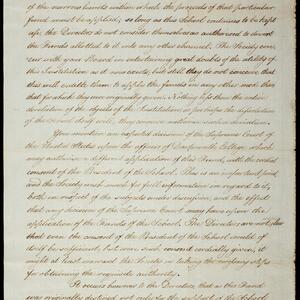 of the narrow limits within which the proceeds of that particular
fund must be applied; so long as this School continues to be kept
up, the Directors do not consider themselves as authorised to divert
the Funds allotted to it into any other channel. The Society con-
cur with your Board in entertaining great doubts of the utility of
this Institution as it now exists, but still they do not conceive that
this will entitle them to apply the funds in any other way than
that for which they were given. Nothing less than the entire
dereliction of the objects of the Institution or perhaps the extinction
of the School itself will, they conceive authorise such a deviation.
You mention an expected decision of the Supreme Court of
the United States upon the affairs of Dartmouth College which
may authorise a different application of this Fund, with the cordial
consent of the President of the School. This is an important point
and the Society wish much for full information in regard to it,
both in respect of the
under discussion, and the effect
that any decision of the Supreme Court may have upon the
application of the Funds of the School. The Directors are not clear
that even the consent of the President of the School would of
itself be sufficient, but were such consent cordially given, it
might at least warrant the Society in taking the necessary steps
for obtaining the requisite authority.
It occurs however to the Directors that as this Fund
was originally declared not
of the School